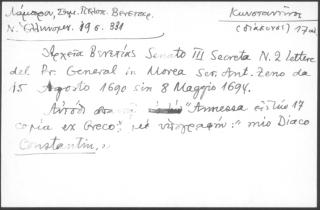 Λάμπρου, Σημ. Πελοπ. Βενετοκρ.
Κωνσταντῖνος
Ν. Ἑλληνομν. 19 σ. 331
(διάκονος) 17
Ἀρχεῖα Βενετίας Senato III Secreta N. 2 Lettere
del Pr. General in Morea Ser. Ant. Zeno da
15 Agosto 1690 sin 8 Maggio 1694.
Αὐτόθι "Annessa 17
copia ex Greco", μὲ ὑπογραφήν: "mio Diaco
Constantin,,